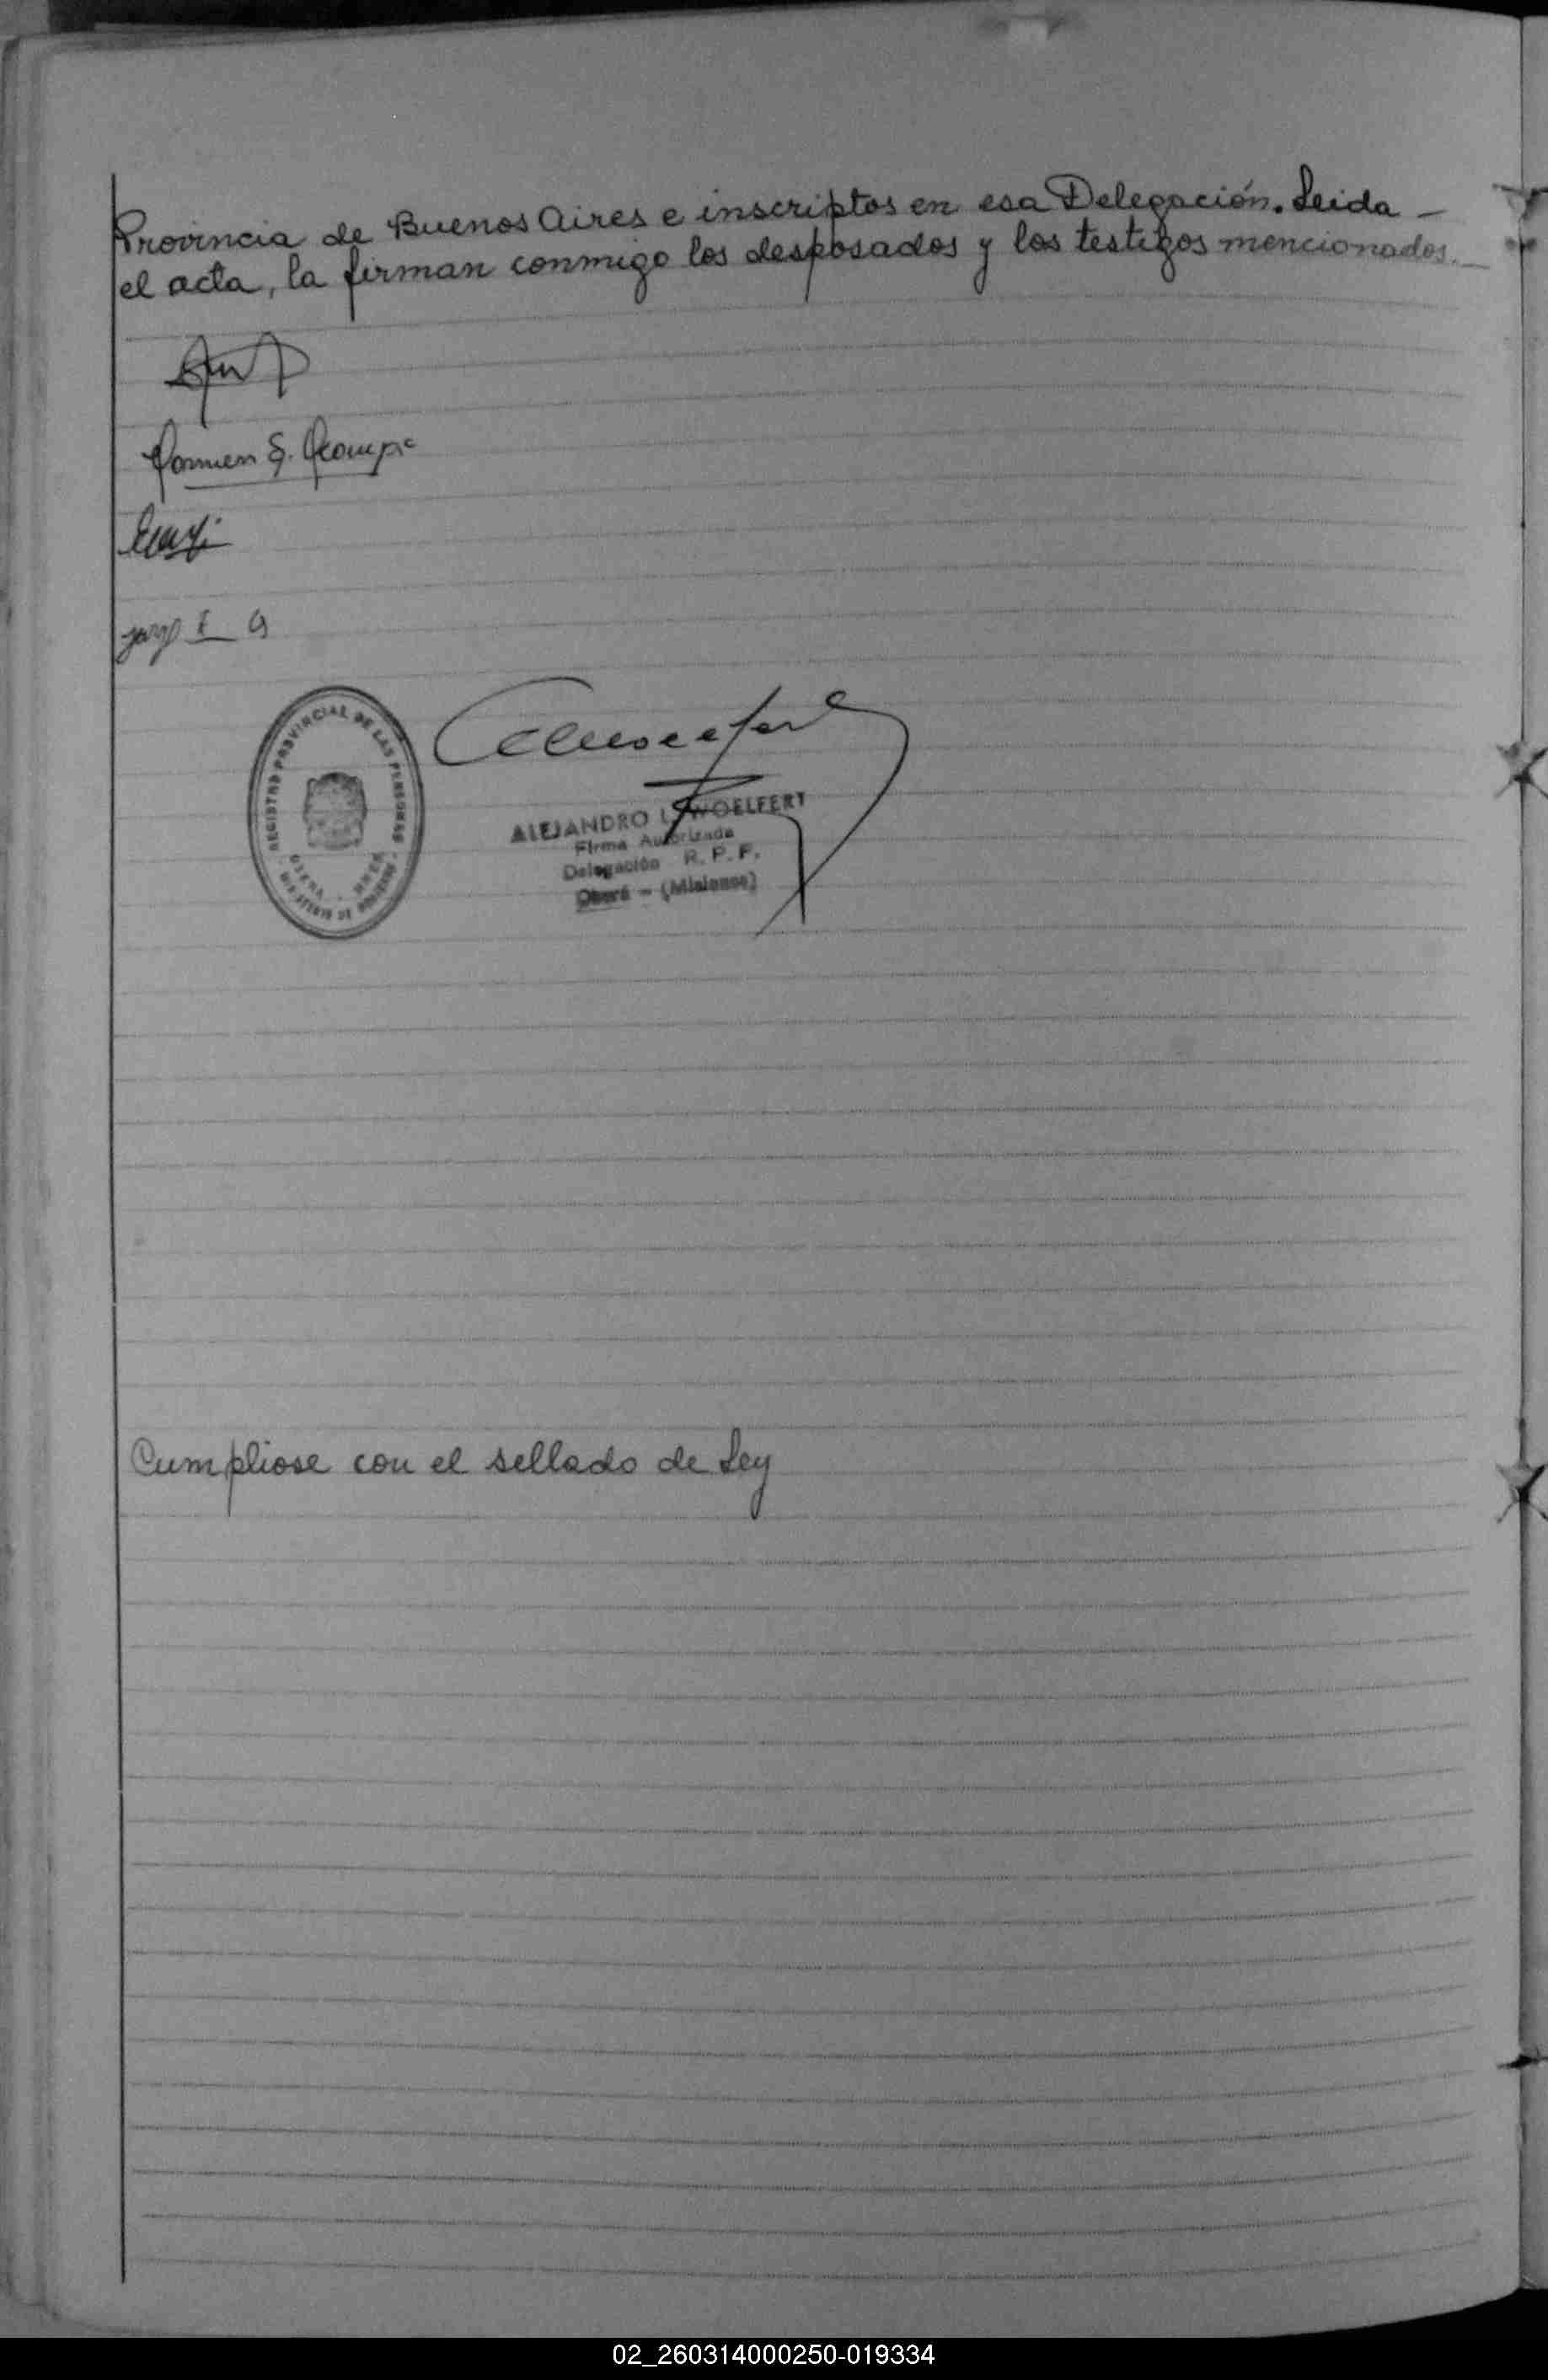 Provincia de Buenos Aires e inscriptos en esa Delegación. Leida -
el acta, la firman conmigo los desposados y los testigos mencionados.-
REGISTRO PROVINCIAL DE LAS PERSONAS
ALEJANDRO L. WOELFERT
Firma Autorizada
Delegación R. P. P.
Oberá - (Misiones)
Cumpliose con el sellado de Ley
02_260314000250-019334